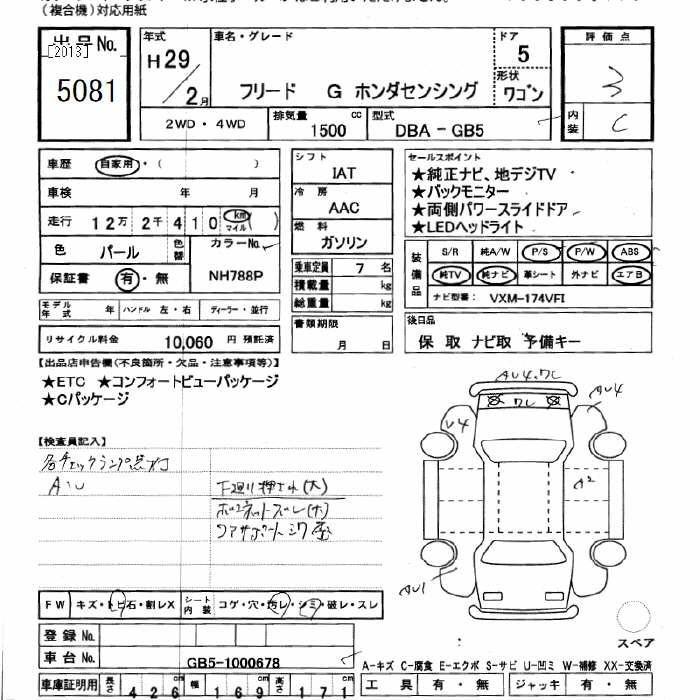 （複合機）対応用紙
出品No.
[2013]
5081
年式
H29/2月
車名・グレード
フリード G ホンダセンシング
ドア
5
形状
ワゴン
評価点
3
内装
C
2WD・4WD
排気量
1500 cc
型式
DBA－GB5
車歴 自家用・（ ）
車検 年 月
走行 12万2千410 km マイル（ ）
色 パール 色替
カラーNo.
NH788P
保証書 有・無
シフト
IAT
冷房
AAC
燃料
ガソリン
乗車定員 7名
積載量 kg
総重量 kg
セールスポイント
★純正ナビ、地デジTV
★バックモニター
★両側パワースライドドア
★LEDヘッドライト
装備品
S/R 純A/W P/S P/W ABS
純TV 純ナビ 革シート 外ナビ エアB
ナビ型番： VXM-174VFI
モデル年式 年 ハンドル 左・右 ディーラー・並行
リサイクル料金 10,060 円 預託済
書類期限
月 日
後日品
保 取 ナビ取 予備キー
【出品店申告欄(不良箇所・欠品・注意事項等)】
★ETC ★コンフォートビューパッケージ
★Cパッケージ
【検査員記入】
各チェックランプ点灯
AU
下廻り押され(大)
AU4.ワレ
ワレ
AU4
U4
A2
AU1
FW キズ・トビ石・割レX シート内装 コゲ・穴・汚レ・シミ・破レ・スレ
登録No.
車台No.
GB5-1000678
スペア
A-キズ C-腐食 E-エクボ S-サビ U-凹ミ W-補修 XX-交換済
車庫証明用 長さ 426cm 幅 169cm 高さ 171cm
工具 有・無 ジャッキ 有・無